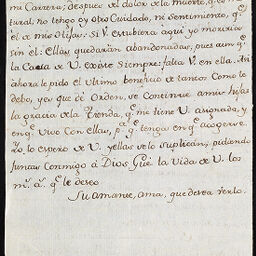 mi Carrera; despues del dolor de la muerte, q.e es na
tural, no tengo oy otro Cuidado, ni sentimiento, q.e
el de mis hijas: si V. estubiera aqui yo moriria
sin el: Ellas quedarán abandonadas, pues aunq.e
la Casa de V. existe siempre: falta V. en ella. Asi
ahora le pido el ultimo beneficio de tantos Como le
debo, y es que dé Orden, se Continue a mis hijas
la gracia de la Prenda, q.e me tiene V. asignada, y
en q.e vivo Con ellas, p.a q.e tengan en q.e acogerse.
Yo lo espero de V. y ellas se lo suplicán, pidiendo
juntas Conmigo á Dios Gũe la Vida de V. los
m.s a.s q.e le deseo
Su amante, ama, que desea verlo.